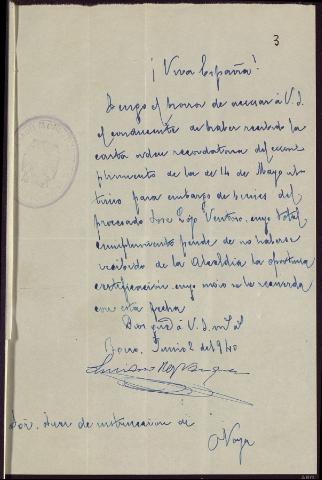 3
¡Viva España!
Tengo el honor de acusar á V.S.
el conducente de haber recibido la
carta orden recordatoria del cum
plimiento de la de 14 de Mayo úl
timo para embargo de bienes del
procesado José Ventoso, cuyo total
cumplimiento pende de no haberse
recibido de la Alcaldía la oportuna
certificación cuyo envio se le recuerda
con esta fecha
Dios gue á V.S. m. a.
Junio 2 del 940
Sor. Juez de instrucción de
Noya